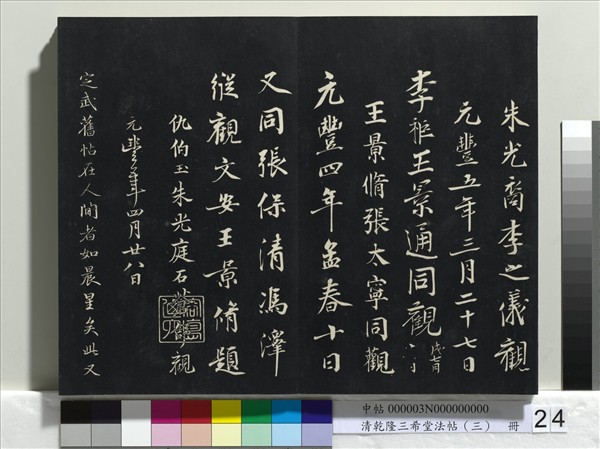 朱光裔李之儀觀
元豐五年三月二十七日
李秬王景通同觀
王景脩張太寧同觀
元豐四年孟春十日
又同張保清馮澤
縱觀文安王景脩題
仇伯玉朱光庭石觀
元豐年四月廿八日
定武舊帖在人間者如晨星矣此又
中帖 000003N000000000
清乾隆三希堂法帖(三) 冊
24